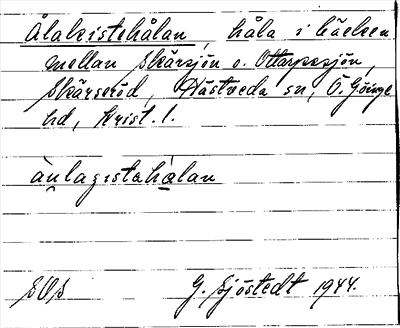 Ålakistehålan, håla i bäcken
mellan Skärsjön o. Ottarpasjön,
Skärseröd, Hästveda sn, Ö. Göinge
hd, Krist. l.
ånlagıstəhålan
SOS G. Sjöstedt 1944.